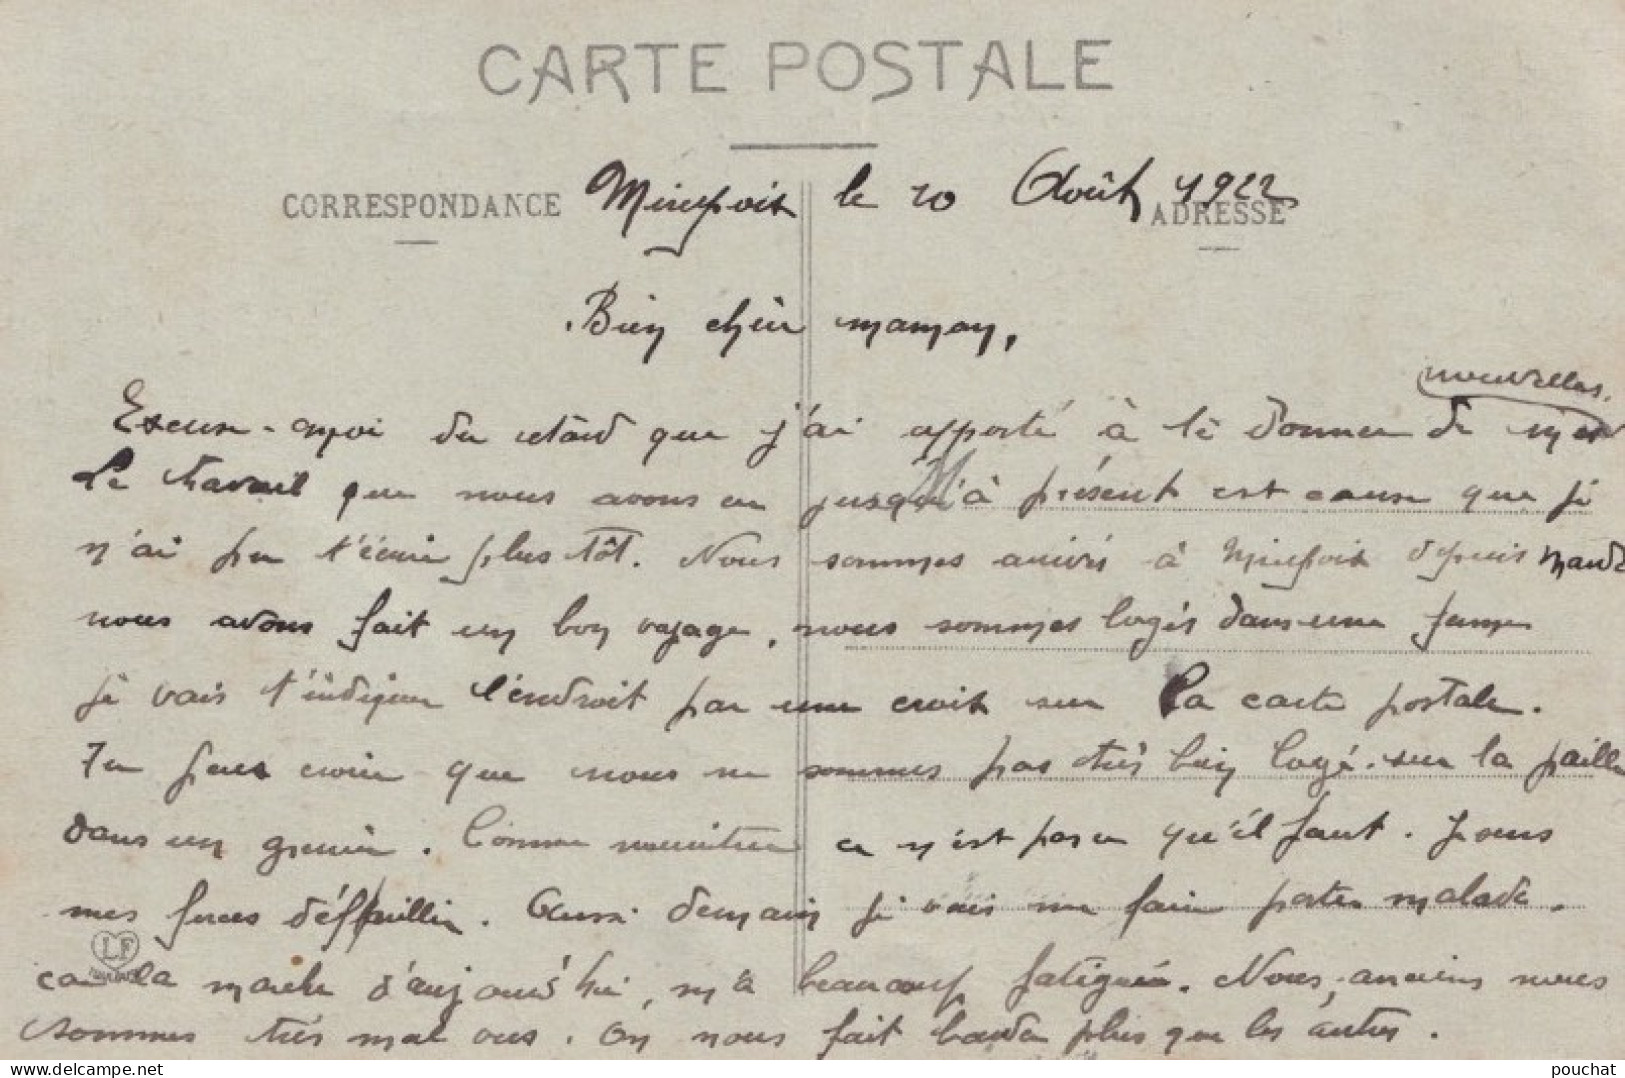 CARTE POSTALE
CORRESPONDANCE
ADRESSE
Mirepoix le 10 Août 1922
Bien chère maman,
nouvelles.
Excuse-moi du retard que j'ai apporté à te donner de mes
Le travail que nous avons eu jusqu'à présent est cause que je
n'ai pu t'écrire plus tôt. Nous sommes arrivés à Mirepoix depuis
nous avons fait un bon voyage, nous sommes logés dans une ferme
je vais t'indiquer l'endroit par une croix sur la carte postale.
Tu peux croire que nous ne sommes pas très bien logé. sur la paille
dans un grenier. Comme nourriture ce n'est pas ce qu'il faut. Je sens
mes forces défaillir. Aussi demain je vais me faire porter malade.
car la marche d'aujourd'hui, m'a beaucoup fatigué. Nous, anciens nous
sommes très mal vus. On nous fait barder plus que les autres.
LF
pouchat
www.delcampe.net